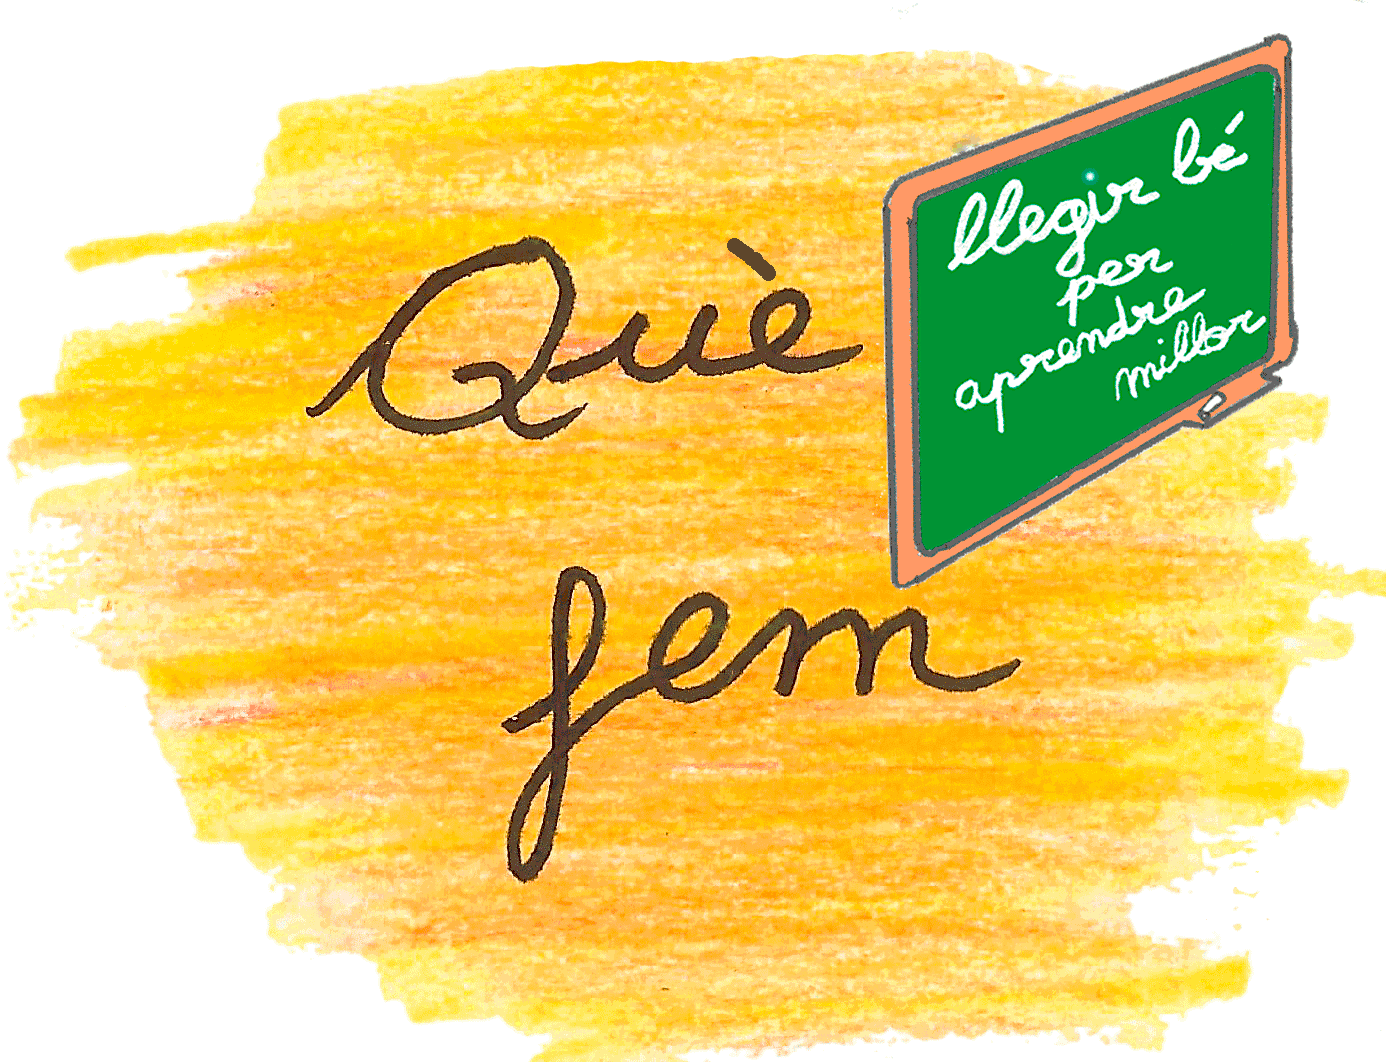 Què
fem
llegir bé
per
aprendre
millor